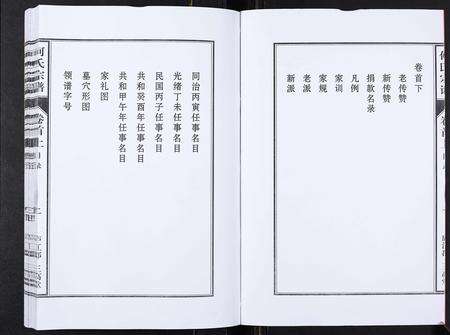 卷首下
老传赞
新传赞
捐款名录
凡例
家训
家规
老派
新派
同治丙寅任事名目
光绪丁未任事名目
民国丙子任事名目
共和癸酉年任事名目
共和甲午年任事名目
家礼图
墓穴形图
领谱字号
何氏宗谱